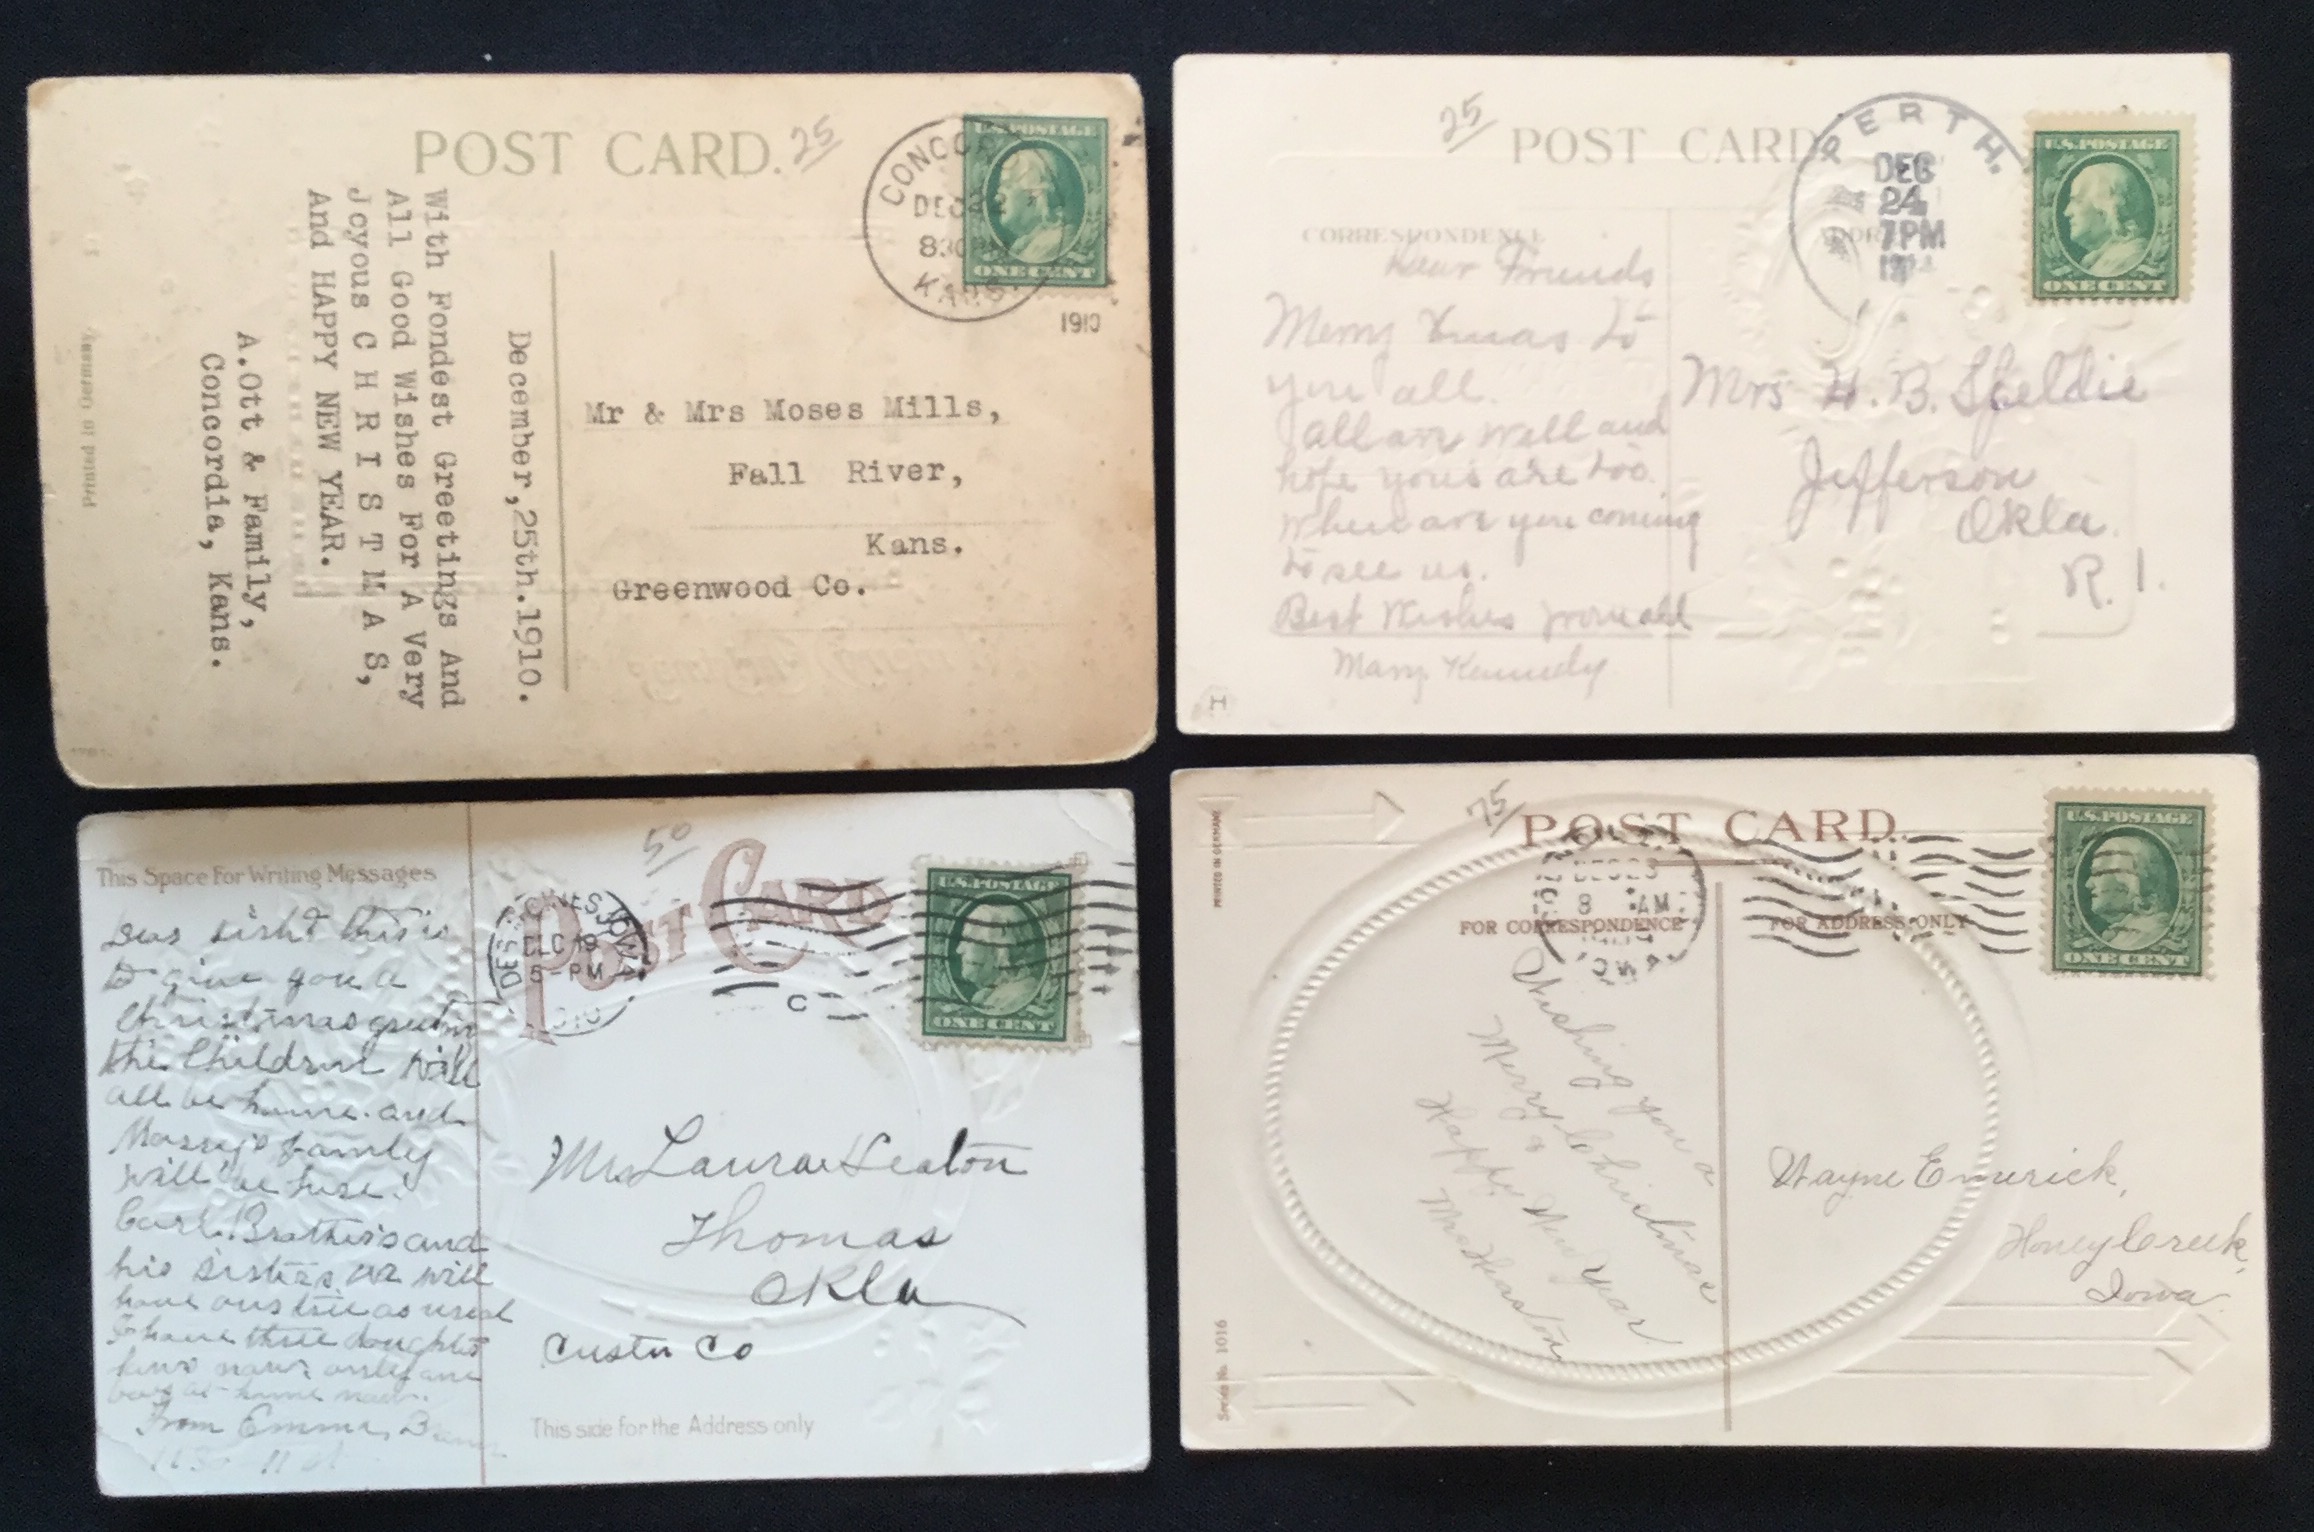 POST CARD.
25
CONCOR
DEC 22
830 PM
KANS
1910
U.S. POSTAGE
ONE CENT
With Fondest Greetings And
All Good Wishes For A Very
Joyous C H R I S T M A S,
And HAPPY NEW YEAR.
A.Ott & Family,
Concordia, Kans.
December,25th.1910.
Mr & Mrs Moses Mills,
Fall River,
Kans.
Greenwood Co.
Printed in Germany
25
POST CARD
PERTH.
DEC
24
7PM
U.S. POSTAGE
ONE CENT
CORRESPONDENCE
ADDR
Dear Friends
Merry Xmas to
you all.
all are well and
hope yours are too.
When are you coming
to see us.
Best Wishes from all
Mary Kennedy
Mrs H. B.
Jefferson
Okla.
R. 1.
H
This Space For Writing Messages
50
POST CARD
DES MOINES, IOWA
DEC 19
5-PM
1910
C
U.S. POSTAGE
ONE CENT
this is
to give you a
Christmas
the Children will
all be home and
family
will be here.
Carl Brothers and
his sisters we will
have our tree as usual
I have three
now only one
boy at home now.
From Emma
Mrs Laura Seaton
Thomas
Okla
Custer Co
This side for the Address only
75
POST CARD.
DEC 23
8 AM
IOWA
U.S. POSTAGE
ONE CENT
PRINTED IN GERMANY
FOR CORRESPONDENCE
FOR ADDRESS ONLY
Wishing you a
Merry Christmas
&
Happy New Year
Mrs
Wayne Emerick,
Honey Creek,
Iowa.
Series No. 1016